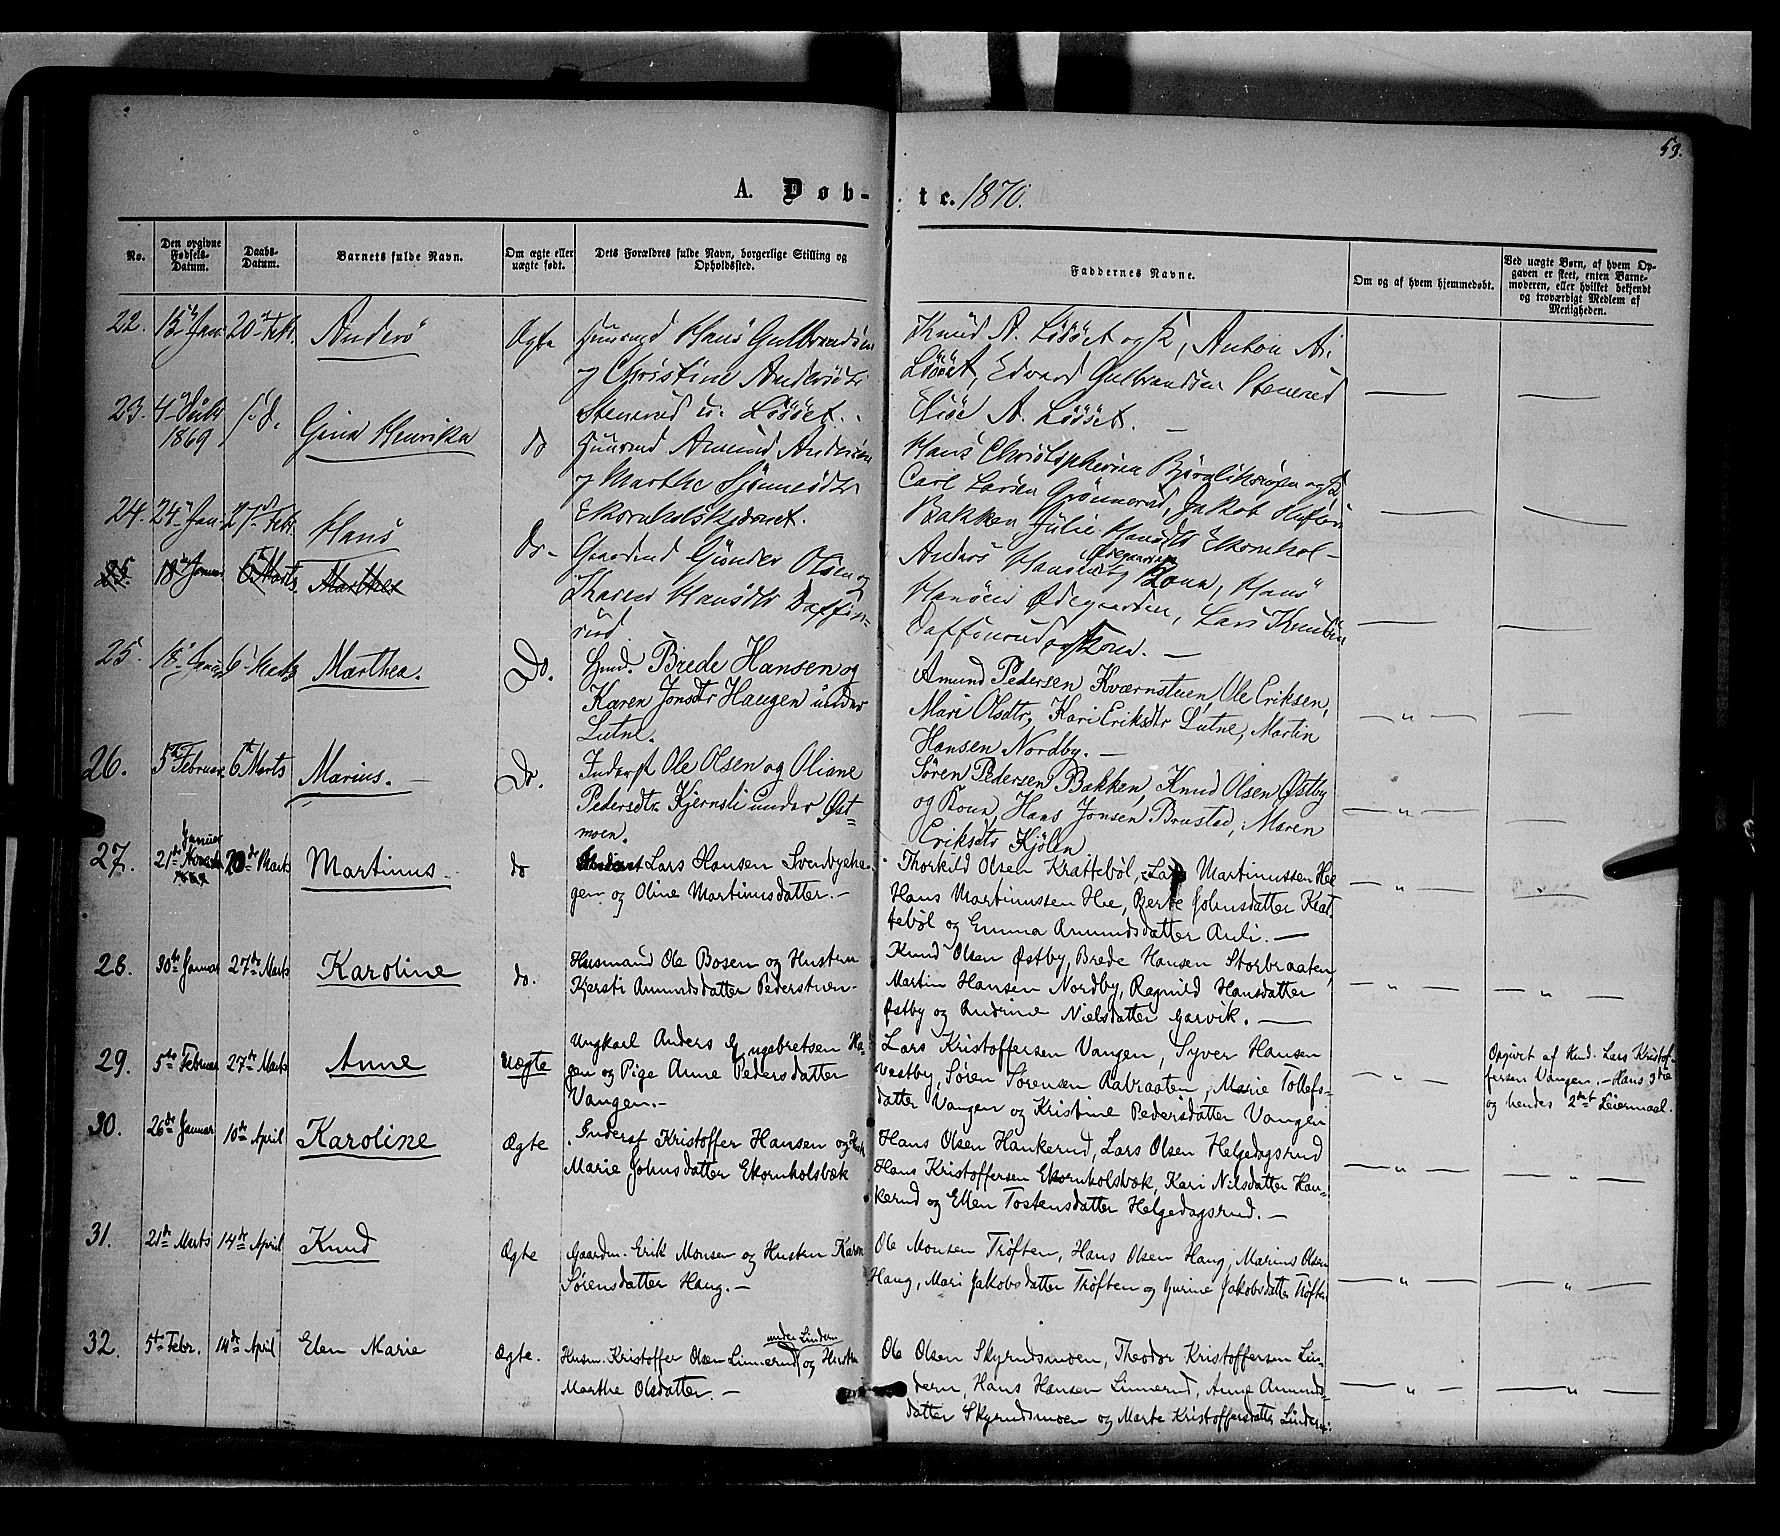 53.
A. Døb-te. 1870.
No.
Den opgivne Fødsels-Datum.
Daabs-Datum.
Barnets fulde Navn.
Om ægte eller uægte født.
Dets Forældres fulde Navn, borgerlige Stilling og Opholdssted.
Faddernes Navne.
Om og af hvem hjemmedøbt.
Ved uægte Børn, af hvem Opgaven er skeet, enten Barnemoderen, eller hvilket bekjendt og troværdigt Medlem af Menigheden.
22. 20 Febr. Anders Ægte Hans Gulbrandsen
og Christine Andersdtr
Stenerud u. Løset.
Knud A. Løset og K, Anton An.
Løset, Edvard Gulbrandsen Stenerud
Elise A. Løset. —
23. 4 Juli 1869 s. d. Gina Henrika do Amund Andersen
og Marthe
Ekornholskjernet.
Hans Christophersen og K
Carl Larsen Grønnerud, Jakob
Bakken Julie Hansdtr Ekornhol-
24. 24 Jan. 27 Febr. Hans Do- Gaardmd Gunder Olsen og
Karen Hansdtr Daffin-
rud
Anders Hansen Ødegaarden og Kona, Hans
Hansen Ødegaarden, Lars Knudsen
Daffinrud og Kona. —
25. 18 Januar 6 Marts Marthea
25. 18 Janr 6 Marts Marthea. Do. Hmd. Brede Hansen og
Karen Jonsdtr Haugen under
Lutne.
Amund Pedersen Kværnstuen, Ole Eriksen,
Mari Olsdtr, Kari Eriksdtr Lutne, Martin
Hansen Nordby. —
26. 5te Februar 6te Marts Marius. — Do. Inderst Ole Olsen og Oliane
Pedersdtr Kjernsli under Øst-
moen.
Søren Pedersen Bakken, Knud Olsen Østby
og Kona, Hans Jonsen Brustad, Maren
Eriksdtr Kjölen
27. 21de Januar 1869 20de Marts Martinus. do Lars Hansen Svenbyeha-
gen og Oline Martinusdatter. —
Thorkild Olsen Krattebøl, Lars Martinussen Hoe
Hans Martinussen Hoe, Berte Johnsdatter Krat-
tebøl og Emma Amundsdatter Auli. —
28. 30te Januar 27de Marts Karoline do. Husmand Ole Bosen og Hustru
Kjersti Amundsdatter Pederstuen-
Knud Olsen Østby, Brede Hansen Storbraaten,
Martin Hansen Nordby, Ragnild Hansdatter
Østby og Andrine Nielsdatter Garvik. —
29. 5te Februar 27de Marts Anne Uægte Ungkarl Anders Engebretsen Ha-
gen og Pige Anne Pedersdatter
Vangen. —
Lars Kristoffersen Vangen, Syver Hansen
Vestby, Søren Sørensen Aabraaten, Marie Tollefs-
datter Vangen og Kristine Pedersdatter Vangen
Opgivet af Hmd. Lars Kristof-
fersen Vangen. — Hans 3die
og hendes 2det Leiermaal.
30. 26de Januar 10de April Karoline Ægte Inderst Kristoffer Hansen og Hust.
Marie Johnsdatter Ekornholsbæk
Hans Olsen Hankerud, Lars Olsen Helgedagsrud
Hans Kristoffersen Ekornholsbæk, Kari Nilsdatter Han-
kerud og Ellen Tostensdatter Helgedagsrud. —
31. 21de Marts 14de April Knud Ægte Gaardm. Erik Monsen og Hustru Karen
Sørensdatter Haug. —
Ole Monsen Trøften, Hans Olsen Haug, Marius Olsen
Haug, Mari Jakobsdatter Trøften og Gurine Jakobsdatter Trøften
32. 5te Febr. 14de April Elen Marie Ægte. Husm. Kristoffer Olsen Linnerud under Lindern og Hustru
Marthe Olsdatter. —
Ole Olsen Skyrudsmoen, Theodor Kristoffersen Lin-
dern, Hans Hansen Linnerud, Anne Amunds-
datter Skyrudsmoen og Marte Kristoffersdatter Lindern.